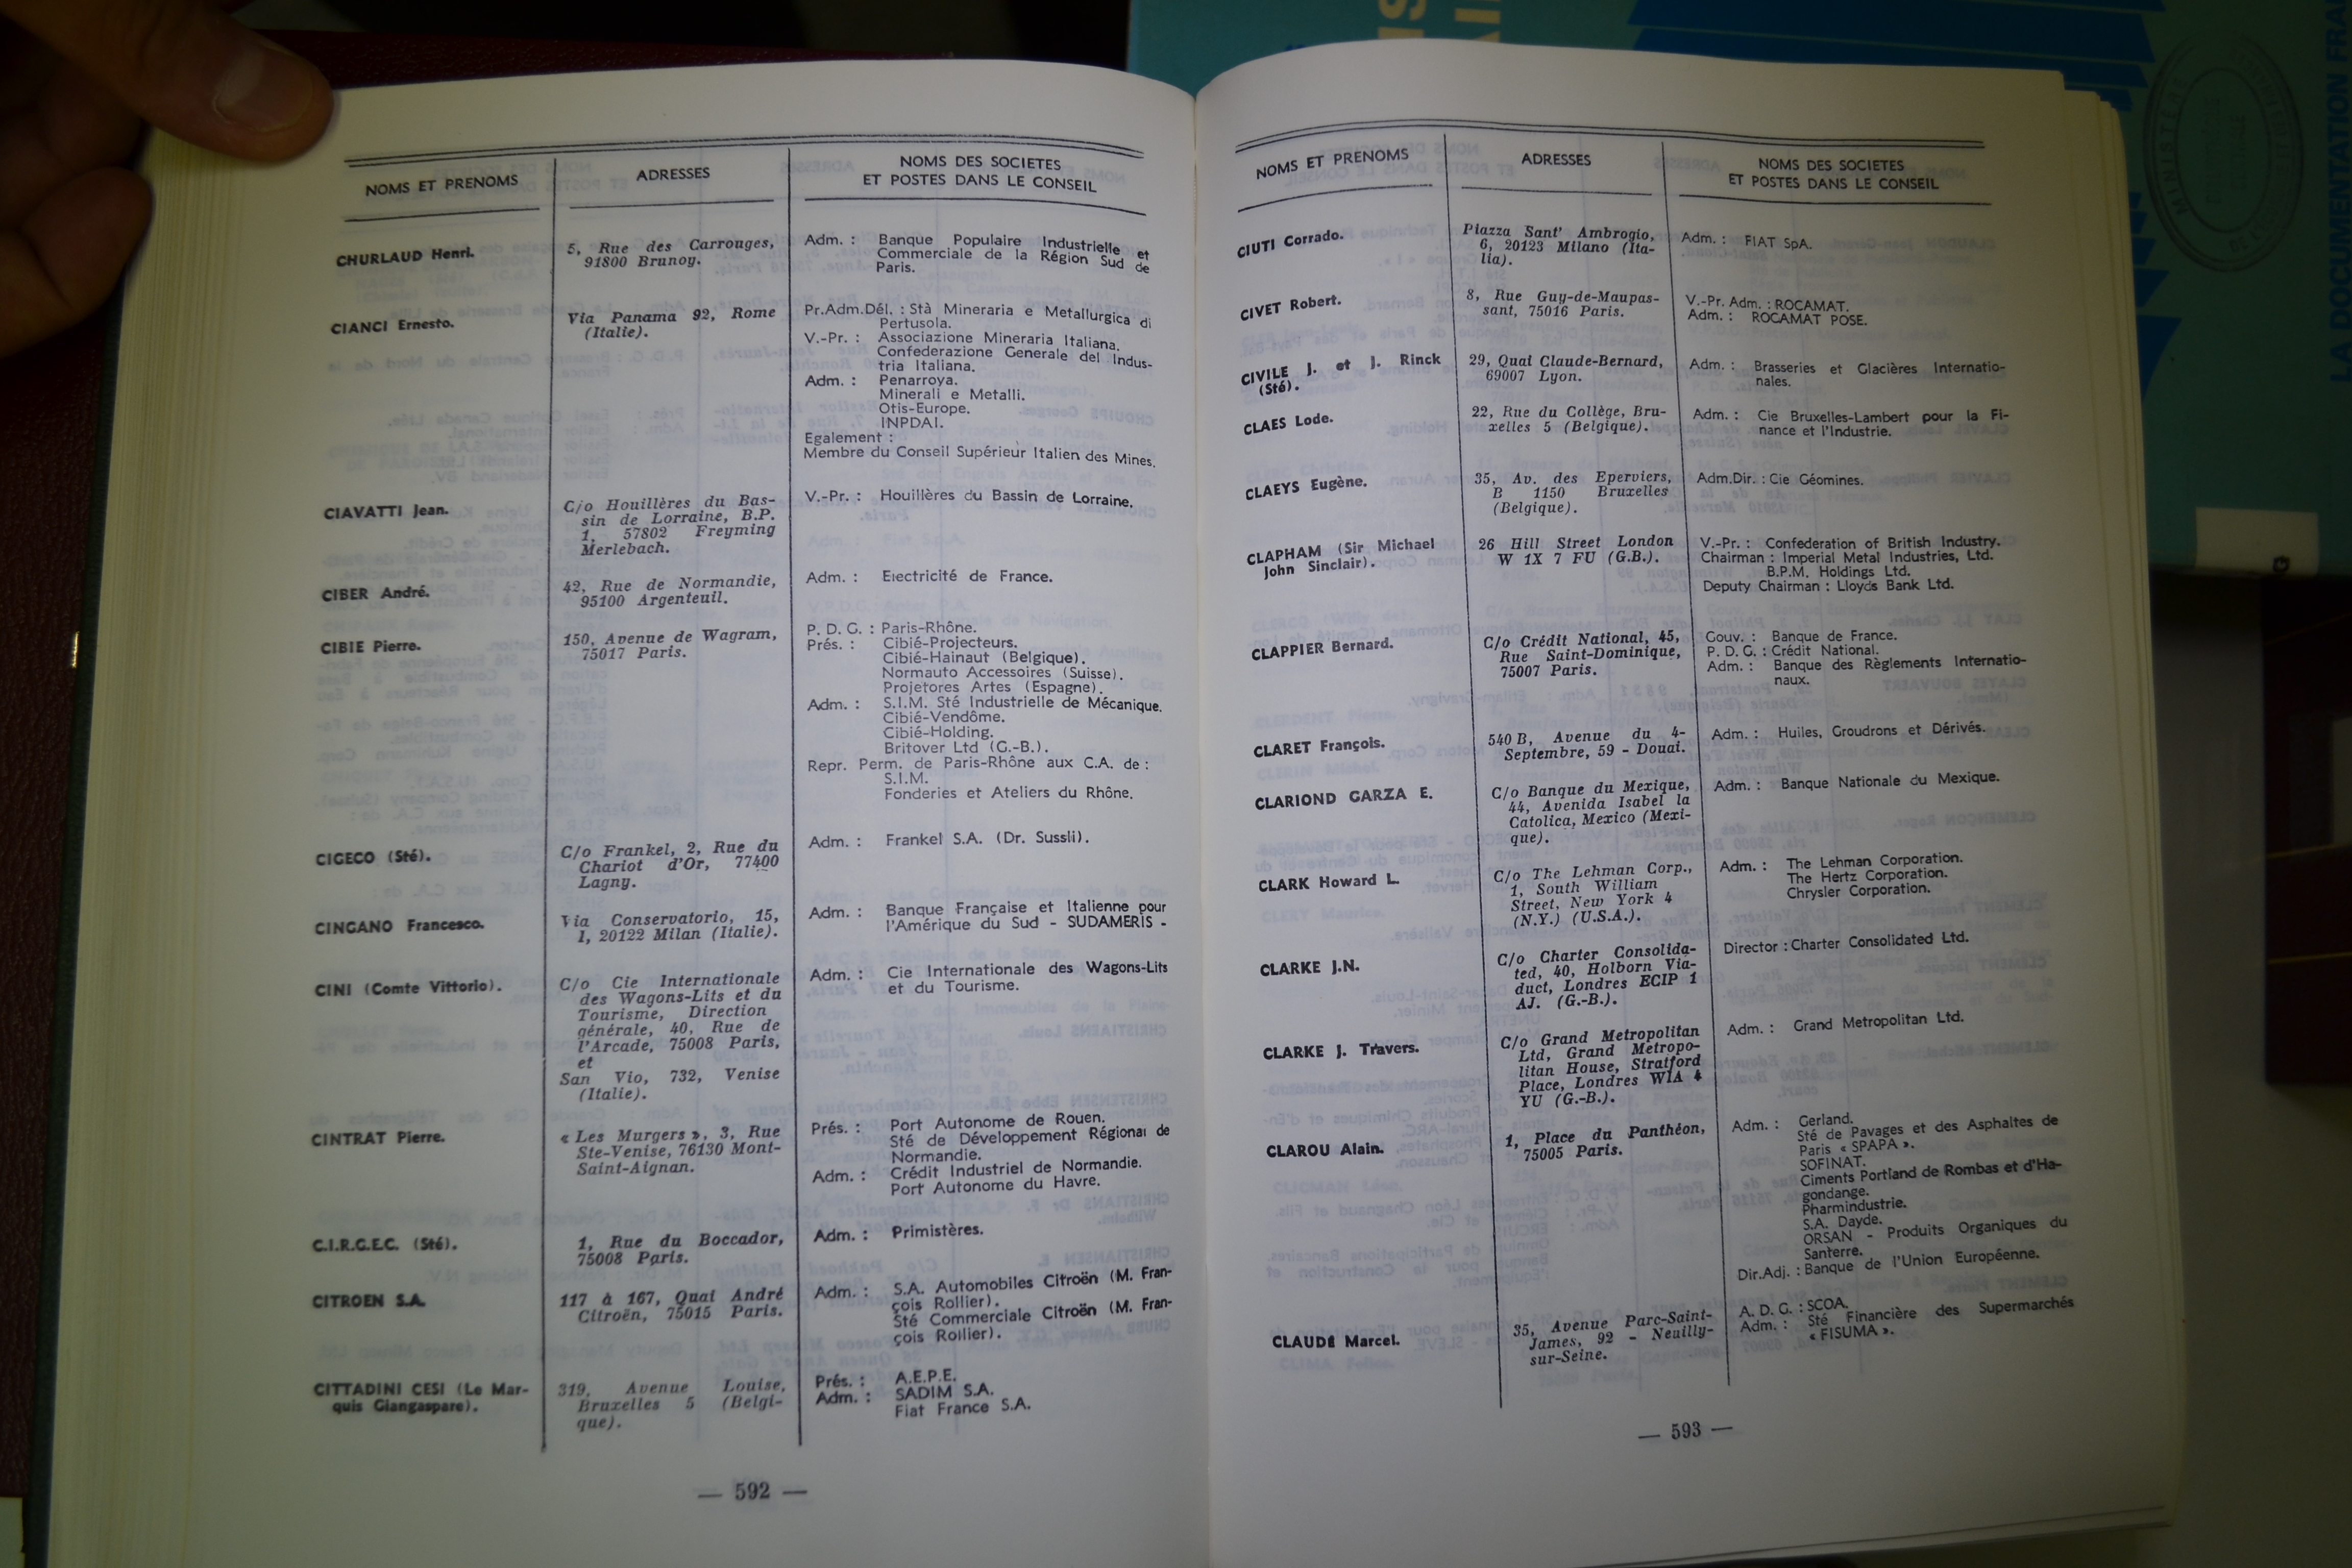 NOMS ET PRENOMS
ADRESSES
NOMS DES SOCIETES
ET POSTES DANS LE CONSEIL
CHURLAUD Henri.
5, Rue des Carrouges,
91800 Brunoy.
Adm. : Banque Populaire Industrielle et
Commerciale de la Région Sud de
Paris.
CIANCI Ernesto.
Via Panama 92, Rome
(Italie).
Pr.Adm.Dél. : Stà Mineraria e Metallurgica di
Pertusola.
V.-Pr. : Associazione Mineraria Italiana.
Confederazione Generale del Indus-
tria Italiana.
Adm. : Penarroya.
Minerali e Metalli.
Otis-Europe.
INPDAI.
Egalement :
Membre du Conseil Supérieur Italien des Mines.
CIAVATTI Jean.
C/o Houillères du Bas-
sin de Lorraine, B.P.
1, 57802 Freyming
Merlebach.
V.-Pr. : Houillères du Bassin de Lorraine.
CIBER André.
42, Rue de Normandie,
95100 Argenteuil.
Adm. : Electricité de France.
CIBIE Pierre.
150, Avenue de Wagram,
75017 Paris.
P. D. G. : Paris-Rhône.
Prés. : Cibié-Projecteurs.
Cibié-Hainaut (Belgique).
Normauto Accessoires (Suisse).
Projetores Artes (Espagne).
Adm. : S.I.M. Sté Industrielle de Mécanique.
Cibié-Vendôme.
Cibié-Holding.
Britover Ltd (G.-B.).
Repr. Perm. de Paris-Rhône aux C.A. de :
S.I.M.
Fonderies et Ateliers du Rhône.
CIGECO (Sté).
C/o Frankel, 2, Rue du
Chariot d'Or, 77400
Lagny.
Adm. : Frankel S.A. (Dr. Sussli).
CINGANO Francesco.
Via Conservatorio, 15,
1, 20122 Milan (Italie).
Adm. : Banque Française et Italienne pour
l'Amérique du Sud - SUDAMERIS -
CINI (Comte Vittorio).
C/o Cie Internationale
des Wagons-Lits et du
Tourisme, Direction
générale, 40, Rue de
l'Arcade, 75008 Paris,
et
San Vio, 732, Venise
(Italie).
Adm. : Cie Internationale des Wagons-Lits
et du Tourisme.
CINTRAT Pierre.
« Les Murgers », 3, Rue
Ste-Venise, 76130 Mont-
Saint-Aignan.
Prés. : Port Autonome de Rouen.
Sté de Développement Régional de
Normandie.
Adm. : Crédit Industriel de Normandie.
Port Autonome du Havre.
C.I.R.G.E.C. (Sté).
1, Rue du Boccador,
75008 Paris.
Adm. : Primistères.
CITROEN S.A.
117 à 167, Quai André
Citroën, 75015 Paris.
Adm. : S.A. Automobiles Citroën (M. Fran-
çois Rollier).
Sté Commerciale Citroën (M. Fran-
çois Rollier).
CITTADINI CESI (Le Mar-
quis Giangaspare).
319, Avenue Louise,
Bruxelles 5 (Belgi-
que).
Prés. : A.E.P.E.
Adm. : SADIM S.A.
Fiat France S.A.
— 592 —
NOMS ET PRENOMS
ADRESSES
NOMS DES SOCIETES
ET POSTES DANS LE CONSEIL
CIUTI Corrado.
Piazza Sant' Ambrogio,
6, 20123 Milano (Ita-
lia).
Adm. : FIAT SpA.
CIVET Robert.
8, Rue Guy-de-Maupas-
sant, 75016 Paris.
V.-Pr. Adm. : ROCAMAT.
Adm. : ROCAMAT POSE.
CIVILE J. et J. Rinck
(Sté).
29, Quai Claude-Bernard,
69007 Lyon.
Adm. : Brasseries et Glacières Internatio-
nales.
CLAES Lode.
22, Rue du Collège, Bru-
xelles 5 (Belgique).
Adm. : Cie Bruxelles-Lambert pour la Fi-
nance et l'Industrie.
CLAEYS Eugène.
35, Av. des Eperviers,
B 1150 Bruxelles
(Belgique).
Adm.Dir. : Cie Géomines.
CLAPHAM (Sir Michael
John Sinclair).
26 Hill Street London
W 1X 7 FU (G.B.).
V.-Pr. : Confederation of British Industry.
Chairman : Imperial Metal Industries, Ltd.
B.P.M. Holdings Ltd.
Deputy Chairman : Lloyds Bank Ltd.
CLAPPIER Bernard.
C/o Crédit National, 45,
Rue Saint-Dominique,
75007 Paris.
Gouv. : Banque de France.
P. D. G. : Crédit National.
Adm. : Banque des Règlements Internatio-
naux.
CLARET François.
540 B, Avenue du 4-
Septembre, 59 - Douai.
Adm. : Huiles, Goudrons et Dérivés.
CLARIOND GARZA E.
C/o Banque du Mexique,
44, Avenida Isabel la
Catolica, Mexico (Mexi-
que).
Adm. : Banque Nationale du Mexique.
CLARK Howard L.
C/o The Lehman Corp.,
1, South William
Street, New York 4
(N.Y.) (U.S.A.).
Adm. : The Lehman Corporation.
The Hertz Corporation.
Chrysler Corporation.
CLARKE J.N.
C/o Charter Consolida-
ted, 40, Holborn Via-
duct, Londres ECIP 1
AJ. (G.-B.).
Director : Charter Consolidated Ltd.
CLARKE J. Travers.
C/o Grand Metropolitan
Ltd, Grand Metropo-
litan House, Stratford
Place, Londres WIA 4
YU (G.-B.).
Adm. : Grand Metropolitan Ltd.
CLAROU Alain.
1, Place du Panthéon,
75005 Paris.
Adm. : Gerland.
Sté de Pavages et des Asphaltes de
Paris « SPAPA ».
SOFINAT.
Ciments Portland de Rombas et d'Ha-
gondange.
Pharmindustrie.
S.A. Dayde.
ORSAN - Produits Organiques du
Santerre.
Dir.Adj. : Banque de l'Union Européenne.
CLAUDE Marcel.
35, Avenue Parc-Saint-
James, 92 - Neuilly-
sur-Seine.
A. D. G. : SCOA.
Adm. : Sté Financière des Supermarchés
« FISUMA ».
— 593 —
MINISTÈRE
LA DOCUMENTATION FRA